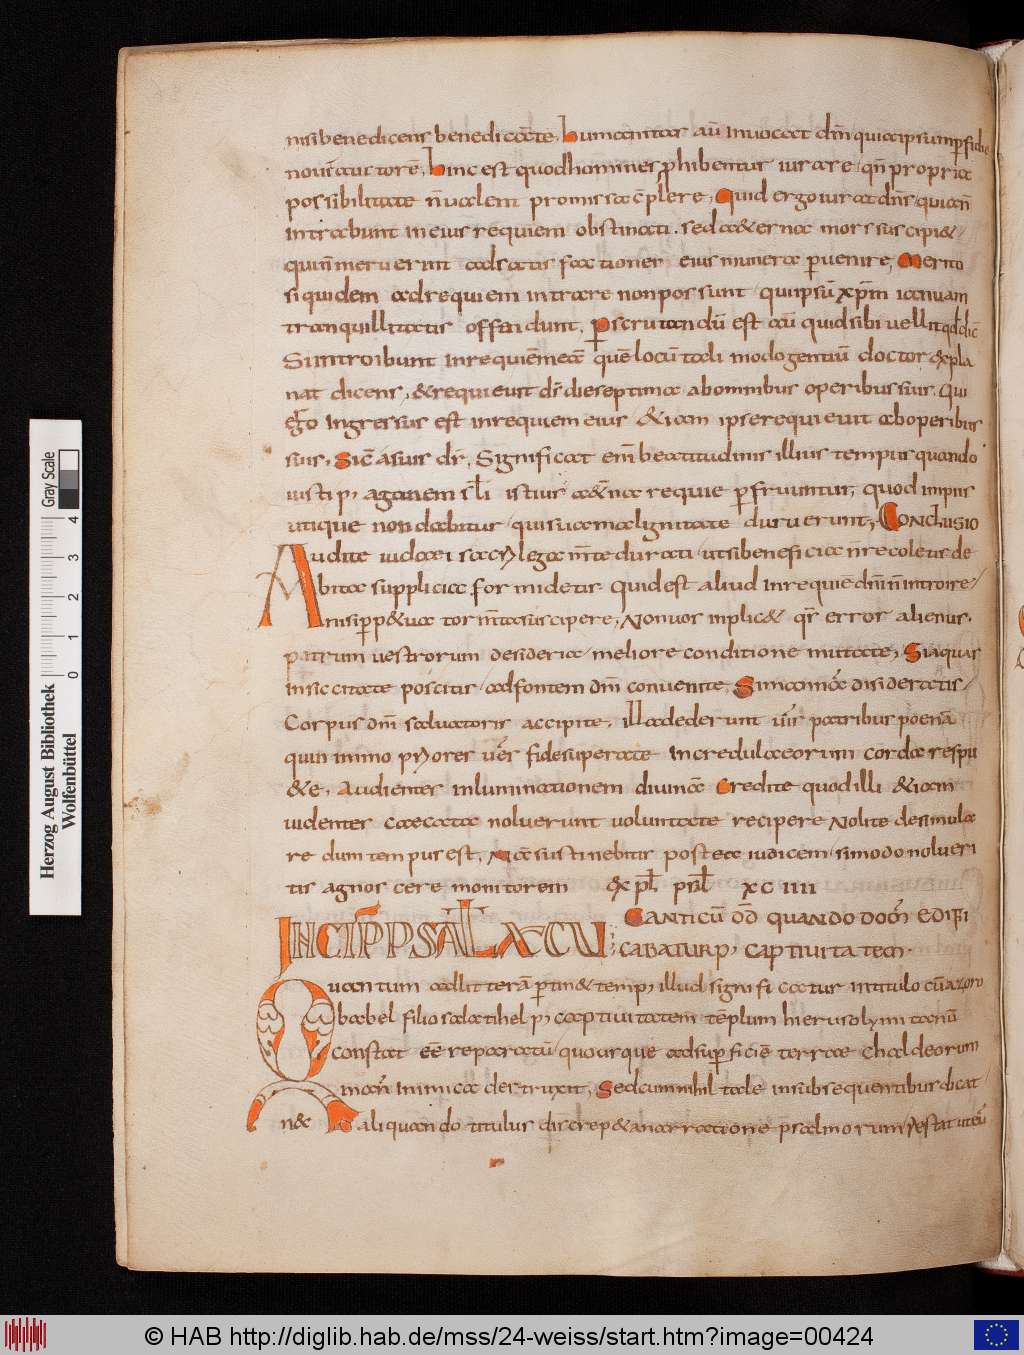 nisi benedicens benedicā te. humanitas aū inuocat dm̄ qui accipsum ꝑ fidē
noūi auctorē. hinc est quod homines ꝓhibentur iurare qn̄ propria
possibilitate n̄ ualent promissa cōplere. Quid ergo iurat dn̄s quia n̄
intrabunt in eius requiem obstinati. sed a& erna mors suscipi&
qui n̄ meruerint ad satisfactiones eius munera ꝑuenire. Merito
siquidem ad requiem intrare non possunt qui ipsū xp̄m ianuam
tranquillitatis offendunt. Pscrutandū est aū quid sibi uellit qd̄ dic̄
Si introibunt in requiē meā quē locū tali modo gentiū doctor expla
nat dicens. & requieuit d̄s die septima ab omnibus operibus suis. Qui
ergo ingressus est in requiem eius & iam ipse requieuit ab operibus
suis. Sic̄ a suis d̄s. Significat eni beatitudinis illius tempus quando
iusti p; agonem sc̄li istius a&na requie ꝑfruuntur, quod impiis
utique non dabitur qui sua malignitate duruerunt; CONCLUSIO
Audite iudaei sacrilega m̄te durati ut si beneficia n̄ recoletis de
bita supplicia formidetis. Quid est aliud in requiē dn̄i n̄ introire
nisi ꝑp&ua torm̄ta suscipere. Non uos inplic& qs̄ error alienus.
patrum uestrorum desideria meliore conditione mutate, Si aquas
in siccitate poscitis ad fontem dn̄i conuenite. Si manna disideratis
Corpus dn̄i saluatoris accipite. illa dederunt ūris patribus poenā
quin immo priores ūes fide superate incredula eorum corda respu
&e. Audientes inluminationem diuinā credite quod illi & iam
uidentes caecata noluerunt uoluntate recipere Nolite desimula
re dum tempus est, Ne sustinebitis postea iudicem si modo nolueri
tis agnoscere monitorem expl̄ psl̄ xc iiii
INCIP PSAL XCU; CANTICŪ DD̄ QUANDO DOM̄ EDIFI
CABATUR P; CAPTIUITATEM.
Quantum ad litterā ꝑtin& temp; illud significatur in titulo cū azoro
babel filio salatihel p; captiuitatem tēplum hierusolymitanū
constat eē reparatū quousque ad suꝑficiē terrae chaldeorum
man; inimica destruxit. Sed cum nihil tale in subsequentibus dicat
n& aliquando titulus discrep& a narratione psalmorum restat ut eū
Herzog August Bibliothek
Wolfenbüttel
0 1 2 3 4
Gray Scale
© HAB http://diglib.hab.de/mss/24-weiss/start.htm?image=00424